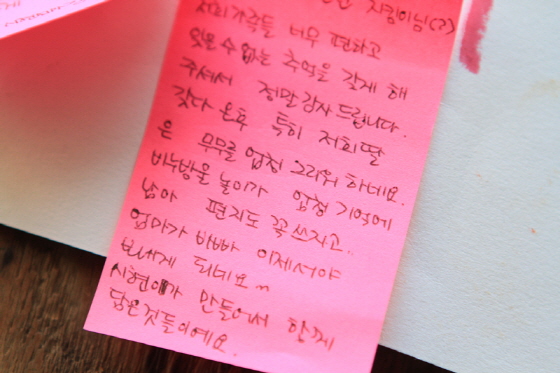 지킴이님(?)
저희가족들 너무 편하고
잊을 수 없는 추억을 갖게 해
주셔서 정말 감사 드립니다.
갔다 온후 특히 저희 딸
은 무무를 엄청 그리워 하네요.
비누방울 놀이가 엄청 기억에
남아 편지도 꼭 쓰자고..
엄마가 바빠 이제서야
보내게 되네요~
시현이가 만들어서 함께
담은것들이에요.